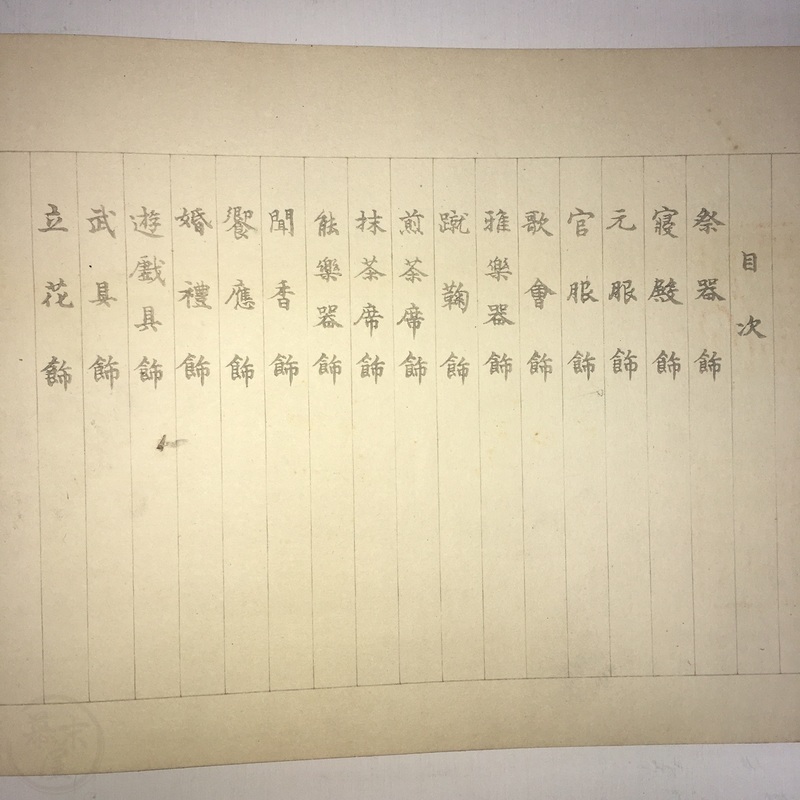 目次
祭器飾
寝殿飾
元服飾
官服飾
歌會飾
雅樂器飾
蹴鞠飾
煎茶席飾
抹茶席飾
能樂器飾
聞香飾
饗應飾
婚禮飾
遊戯具飾
武具飾
立花飾